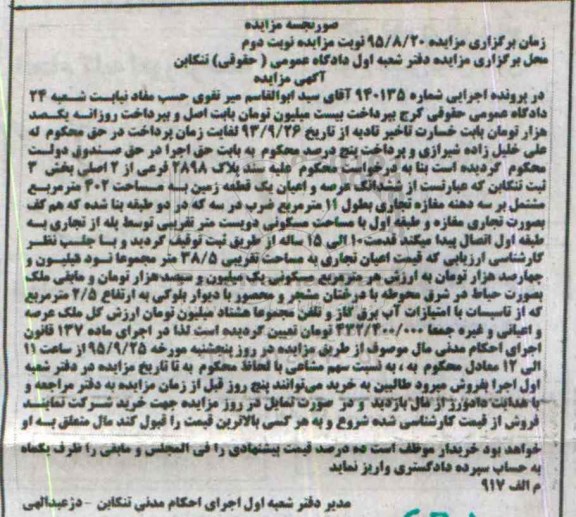 صورتجسه مزایده
زمان برگزاری مزایده ۹۵/۸/۲۰ نوبت مزایده نوبت دوم
محل برگزاری مزایده دفتر شعبه اول دادگاه عمومی ( حقوقی) تنکابن
آگهی مزایده
در پرونده اجرایی شماره ۹۴۰۱۳۵ آقای سید ابوالقاسم میر تقوی حسب مفاد نیابت شعبه ۲۴
دادگاه عمومی حقوقی کرج بپرداخت بیست میلیون تومان بابت اصل و بپرداخت روزانه یکصد
هزار تومان بابت خسارت تاخیر تادیه از تاریخ ۹۳/۹/۲۶ لغایت زمان پرداخت در حق محکوم له
علی خلیل زاده شیرازی و پرداخت پنج درصد محکوم به بابت حق اجرا در حق صندوق دولت
محکوم گردیده است بنا به درخواست محکوم علیه سند پلاک ۲۸۹۸ فرعی از ۲ اصلی بخش ۳
ثبت تنکابن که عبارتست از ششدانگ عرصه و اعیان یک قطعه زمین به مساحت ۴۰۲ مترمربع
مشتمل بر سه دهنه مغازه تجاری بطول ۱۱ مترمربع ضرب در سه که در دو طبقه بنا شده که هم کف
بصورت تجاری مغازه و طبقه اول با مساحت مسکونی دویست متر تقریبی توسط پله از تجاری به
طبقه اول اتصال پیدا میکند قدمت ۱۰ الی ۱۵ ساله از طریق ثبت توقیف گردید و با جلب نظر
کارشناسی ارزیابی که قیمت اعیان تجاری به مساحت تقریبی ۳۸/۵ متر مجموعا نود میلیون و
چهارصد هزار تومان به ارزش هر مترمربع مسکونی یک میلیون و سیصد هزار تومان و مابقی ملک
بصورت حیاط در شرق محوطه با درختان مشجر و محصور با دیوار بلوکی به ارتفاع ۲/۵ مترمربع
که از تاسیسات با امتیازات آب برق گاز و تلفن مجموعا هشتاد میلیون تومان ارزش کل ملک عرصه
و اعیانی و غیره جمعا ۴۳۲/۴۰۰/۰۰۰ تومان تعیین گردیده است لذا در اجرای ماده ۱۳۷ قانون
اجرای احکام مدنی مال موصوف از طریق مزایده در روز پنجشنبه مورخه ۹۵/۹/۲۵ از ساعت ۱۱
الی ۱۲ معادل محکوم به ، به نسبت سهم مشاعی با لحاظ محکوم به تا تاریخ مزایده در دفتر شعبه
اول اجرا بفروش میرود طالبین به خرید می‌توانند پنج روز قبل از زمان مزایده به دفتر مراجعه و
با هدایت دادورز از مال بازدید و در صورت تمایل در روز مزایده جهت خرید شرکت نمایند
فروش از قیمت کارشناسی شده شروع و به هر کسی بالاترین قیمت را قبول کند مال متعلق به او
خواهد بود خریدار موظف است ده درصد قیمت پیشنهادی را فی المجلس و مابقی را ظرف یکماه
به حساب سپرده دادگستری واریز نماید
م الف ۹۱۷
مدیر دفتر شعبه اول اجرای احکام مدنی تنکابن - دزعبدالهی